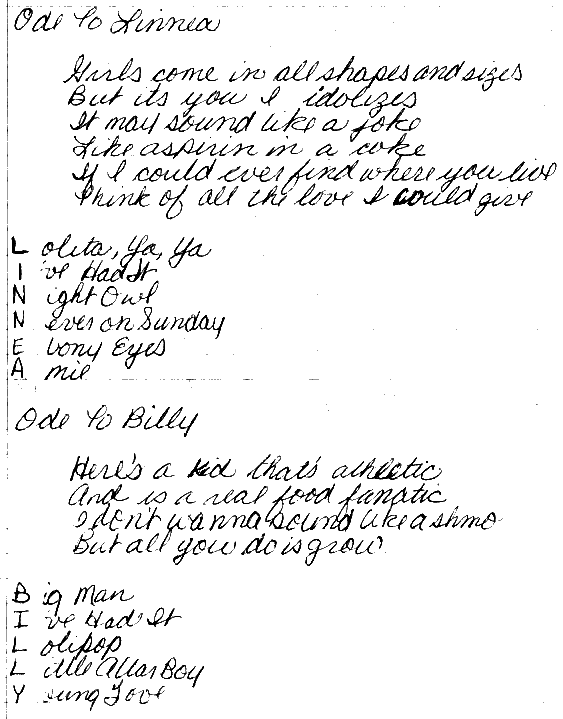 Ode To Linnea
Girls come in all shapes and sizes
But its you I idolizes
It may sound like a joke
Like aspirin in a coke
If I could ever find where you live
Think of all the love I could give
L olita, Ya, Ya
I 've Had It
N ight Owl
N ever on Sunday
E bony Eyes
A mie
Ode To Billy
Here's a kid that's athletic
And is a real food fanatic
I don't wanna sound like a shmo
But all you do is grow
B ig Man
I 've Had It
L olipop
L ittle Altar Boy
Y oung Love